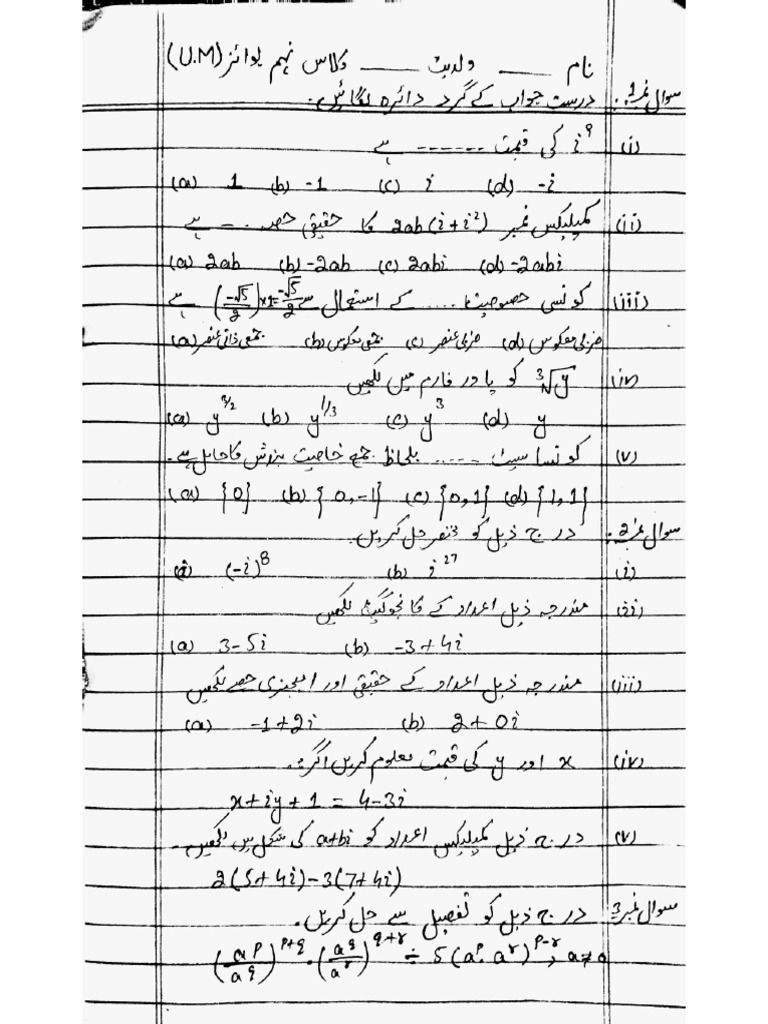 نام ____ ولدیت ____ کلاس نہم بوائز (U.M)
سوال نمبر 1: درست جواب کے گرد دائرہ لگائیں۔
(i) i⁹ کی قیمت ------ ہے
(a) 1 (b) -1 (c) i (d) -i
(ii) کمپلیکس نمبر 2ab(i+i²) کا حقیقی حصہ .... ہے
(a) 2ab (b) -2ab (c) 2abi (d) -2abi
(iii) کونسی خصوصیت ..... کے استعمال سے (-√5/2)×1=-√5/2 ہے
(a) جمعی ذاتی عنصر (b) جمعی معکوس (c) ضربی عنصر (d) ضربی معکوس
(iv) ³√y کو پاور فارم میں لکھیں
(a) y^3/2 (b) y^1/3 (c) y³ (d) y
(v) کونسا سیٹ ..... بلحاظ جمع خاصیت بندش کا حامل ہے۔
(a) {0} (b) {0,-1} (c) {0,1} (d) {1,1}
سوال نمبر 2: درج ذیل کو مختصر حل کریں۔
(i) (a) (-i)⁸ (b) i²⁷
(ii) مندرجہ ذیل اعداد کے کانجوگیٹ لکھیں
(a) 3-5i (b) -3+4i
(iii) مندرجہ ذیل اعداد کے حقیقی اور امیجنری حصے لکھیں
(a) -1+2i (b) 2+0i
(iv) x اور y کی قیمت معلوم کریں اگر:
x+iy+1 = 4-3i
(v) درج ذیل کمپلیکس اعداد کو a+bi کی شکل میں لکھیں۔
2(5+4i)-3(7+4i)
سوال نمبر 3: درج ذیل کو تفصیل سے حل کریں۔
(a^p/a^q)^p+q · (a^q/a^r)^q+r ÷ 5(a^p · a^r)^p-r, a≠0